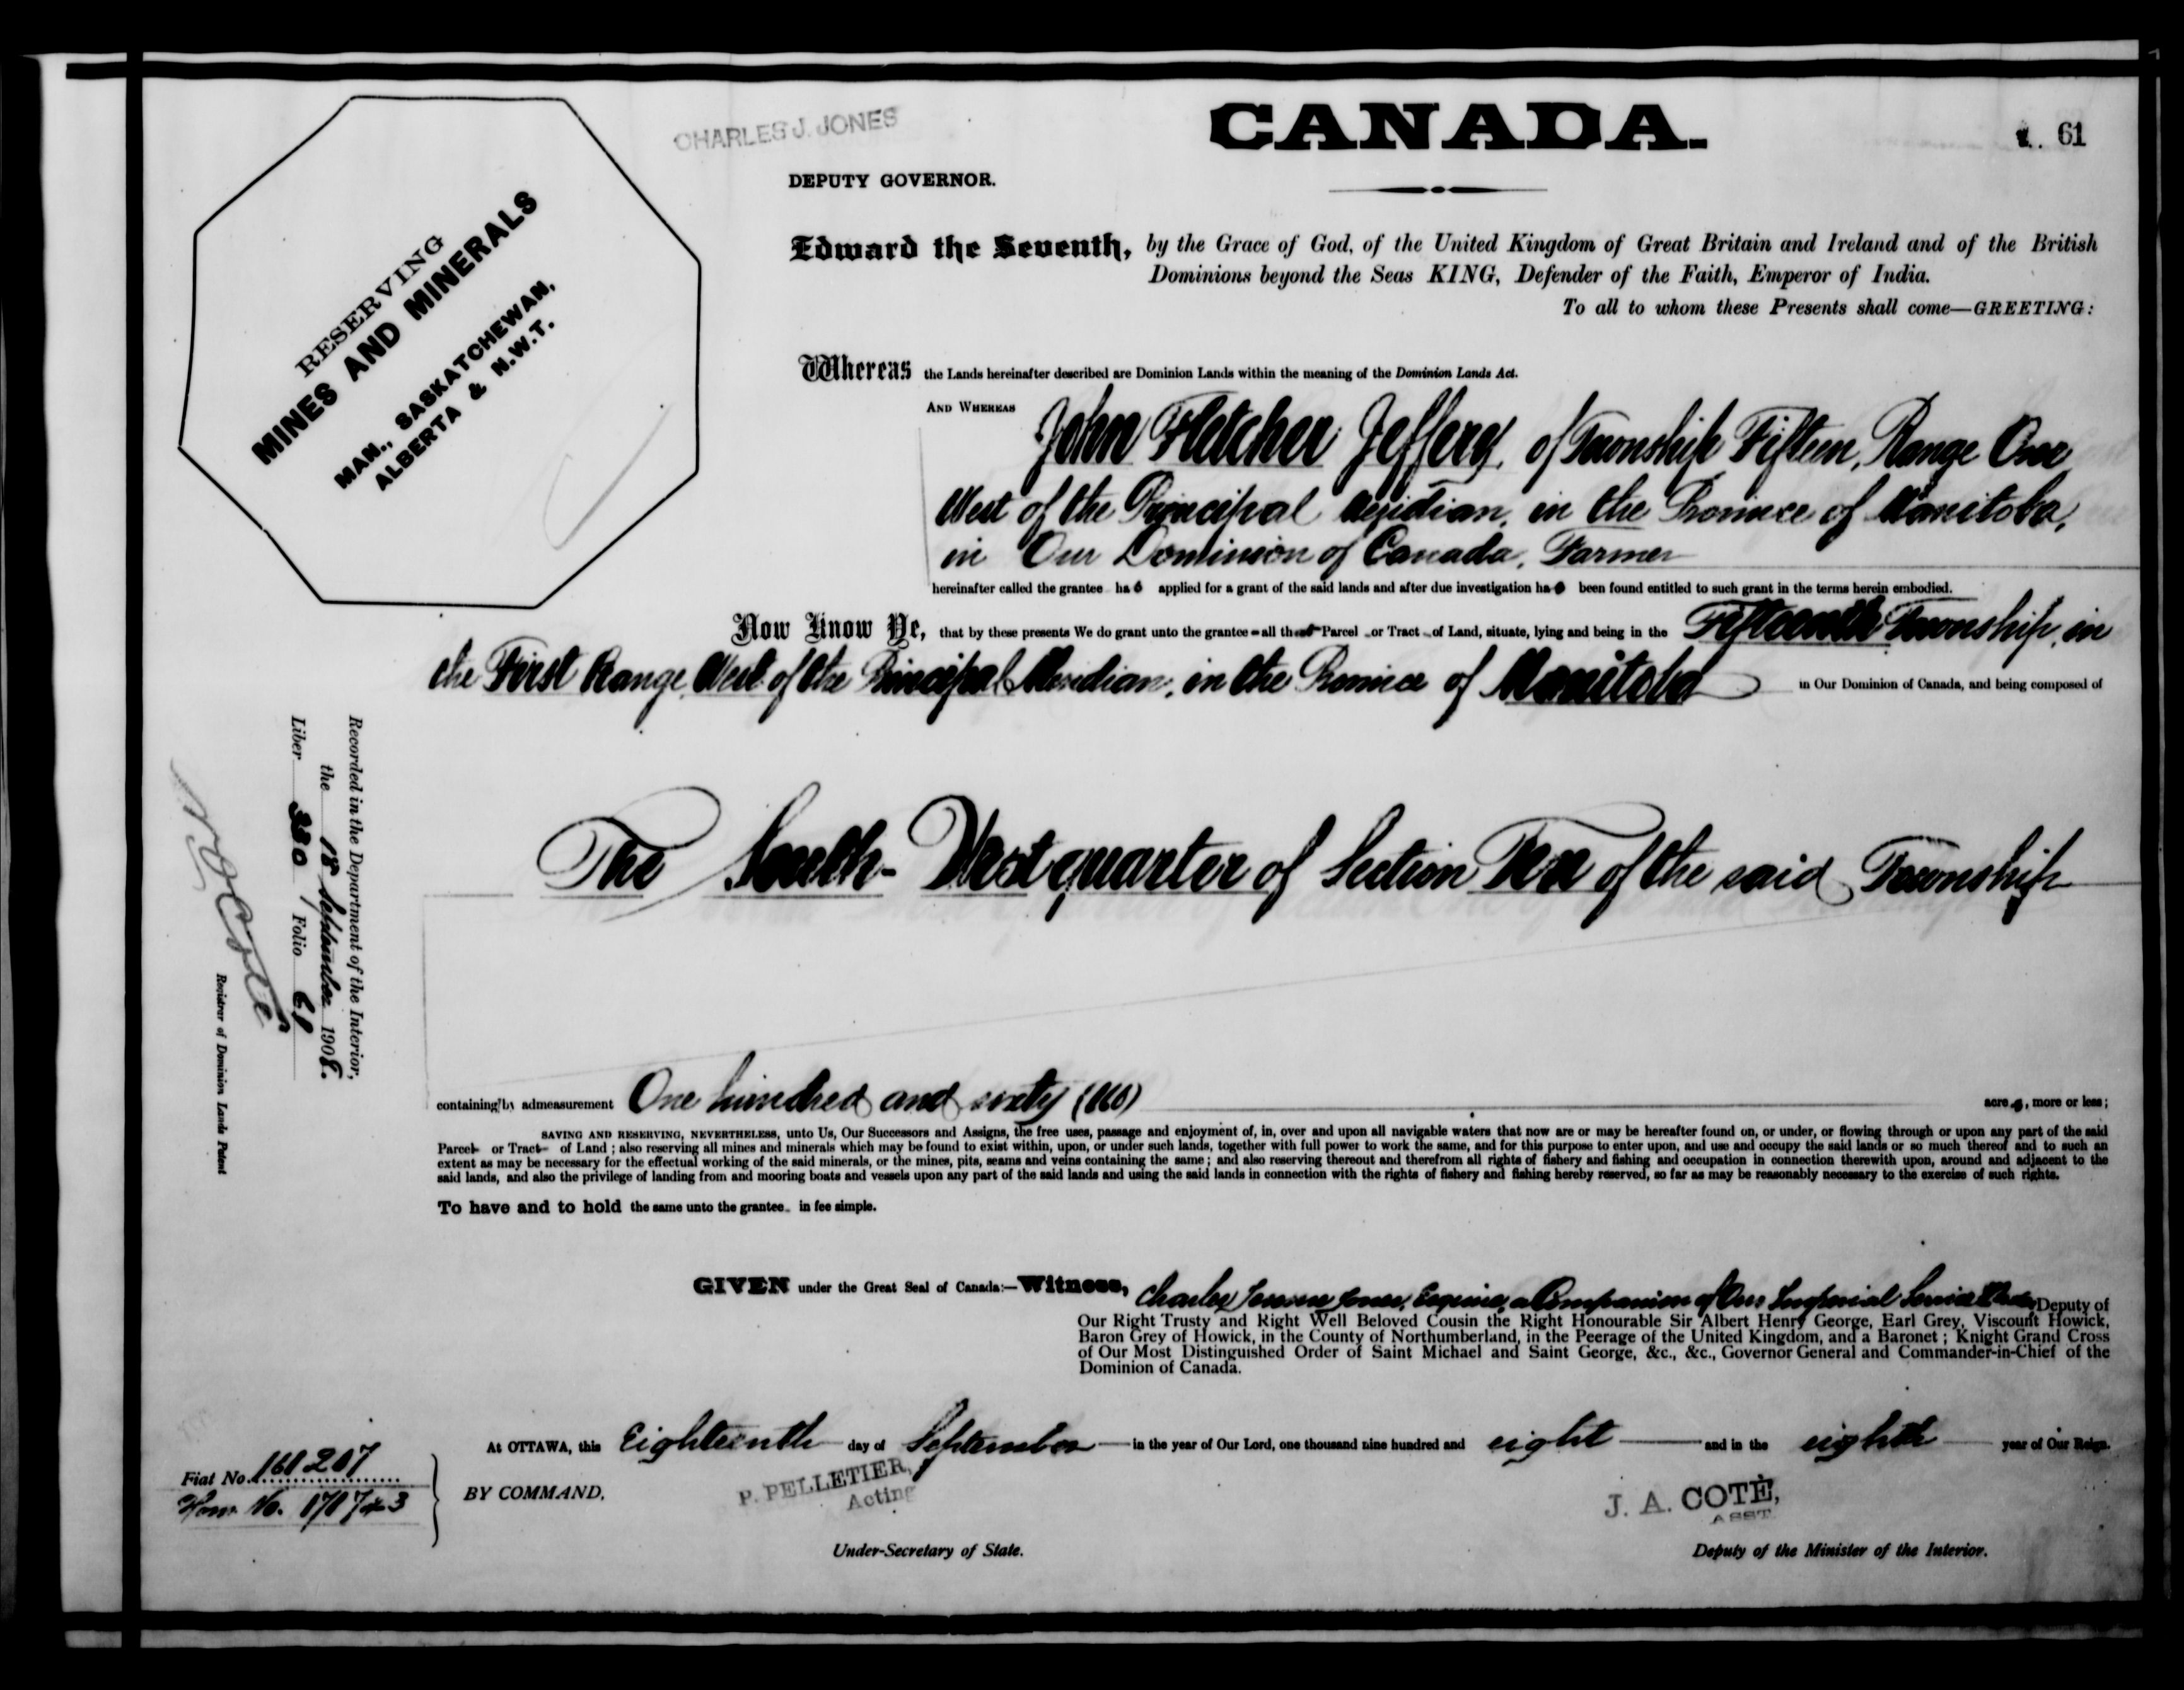 CHARLES J. JONES
CANADA.
61
DEPUTY GOVERNOR.
RESERVING
MINES AND MINERALS
MAN., SASKATCHEWAN,
ALBERTA & N.W.T.
Edward the Seventh, by the Grace of God, of the United Kingdom of Great Britain and Ireland and of the British
Dominions beyond the Seas KING, Defender of the Faith, Emperor of India.
To all to whom these Presents shall come—GREETING:
Whereas the Lands hereinafter described are Dominion Lands within the meaning of the Dominion Lands Act.
AND WHEREAS John Fletcher Jeffery, of Township Fifteen, Range One
West of the Principal Meridian, in the Province of Manitoba,
in Our Dominion of Canada, Farmer
hereinafter called the grantee has applied for a grant of the said lands and after due investigation has been found entitled to such grant in the terms herein embodied.
Now Know Ye, that by these presents We do grant unto the grantee all that Parcel or Tract of Land, situate, lying and being in the Fifteenth Township, in
the First Range West of the Principal Meridian, in the Province of Manitoba in Our Dominion of Canada, and being composed of
The South-West quarter of Section Ten of the said Township
Recorded in the Department of the Interior,
the 18th September 1908.
Liber 330 Folio 61
N O Coté
Registrar of Dominion Lands Patent
containing by admeasurement One hundred and sixty (160) acres, more or less;
SAVING AND RESERVING, NEVERTHELESS, unto Us, Our Successors and Assigns, the free uses, passage and enjoyment of, in, over and upon all navigable waters that now are or may be hereafter found on, or under, or flowing through or upon any part of the said
Parcel or Tract of Land; also reserving all mines and minerals which may be found to exist within, upon, or under such lands, together with full power to work the same, and for this purpose to enter upon, and use and occupy the said lands or so much thereof and to such an
extent as may be necessary for the effectual working of the said minerals, or the mines, pits, seams and veins containing the same; and also reserving thereout and therefrom all rights of fishery and fishing and occupation in connection therewith upon, around and adjacent to the
said lands, and also the privilege of landing from and mooring boats and vessels upon any part of the said lands and using the said lands in connection with the rights of fishery and fishing hereby reserved, so far as may be reasonably necessary to the exercise of such rights.
To have and to hold the same unto the grantee in fee simple.
GIVEN under the Great Seal of Canada:—Witness, Charles Jones, Esquire, a Companion of Our Imperial Service Order Deputy of
Our Right Trusty and Right Well Beloved Cousin the Right Honourable Sir Albert Henry George, Earl Grey, Viscount Howick,
Baron Grey of Howick, in the County of Northumberland, in the Peerage of the United Kingdom, and a Baronet; Knight Grand Cross
of Our Most Distinguished Order of Saint Michael and Saint George, &c., &c., Governor General and Commander-in-Chief of the
Dominion of Canada.
At OTTAWA, this Eighteenth day of September in the year of Our Lord, one thousand nine hundred and eight and in the eighth year of Our Reign.
Fiat No. 161207
Hom. No.
BY COMMAND,
P. PELLETIER,
Acting
Under-Secretary of State.
J. A. COTÉ,
ASST.
Deputy of the Minister of the Interior.